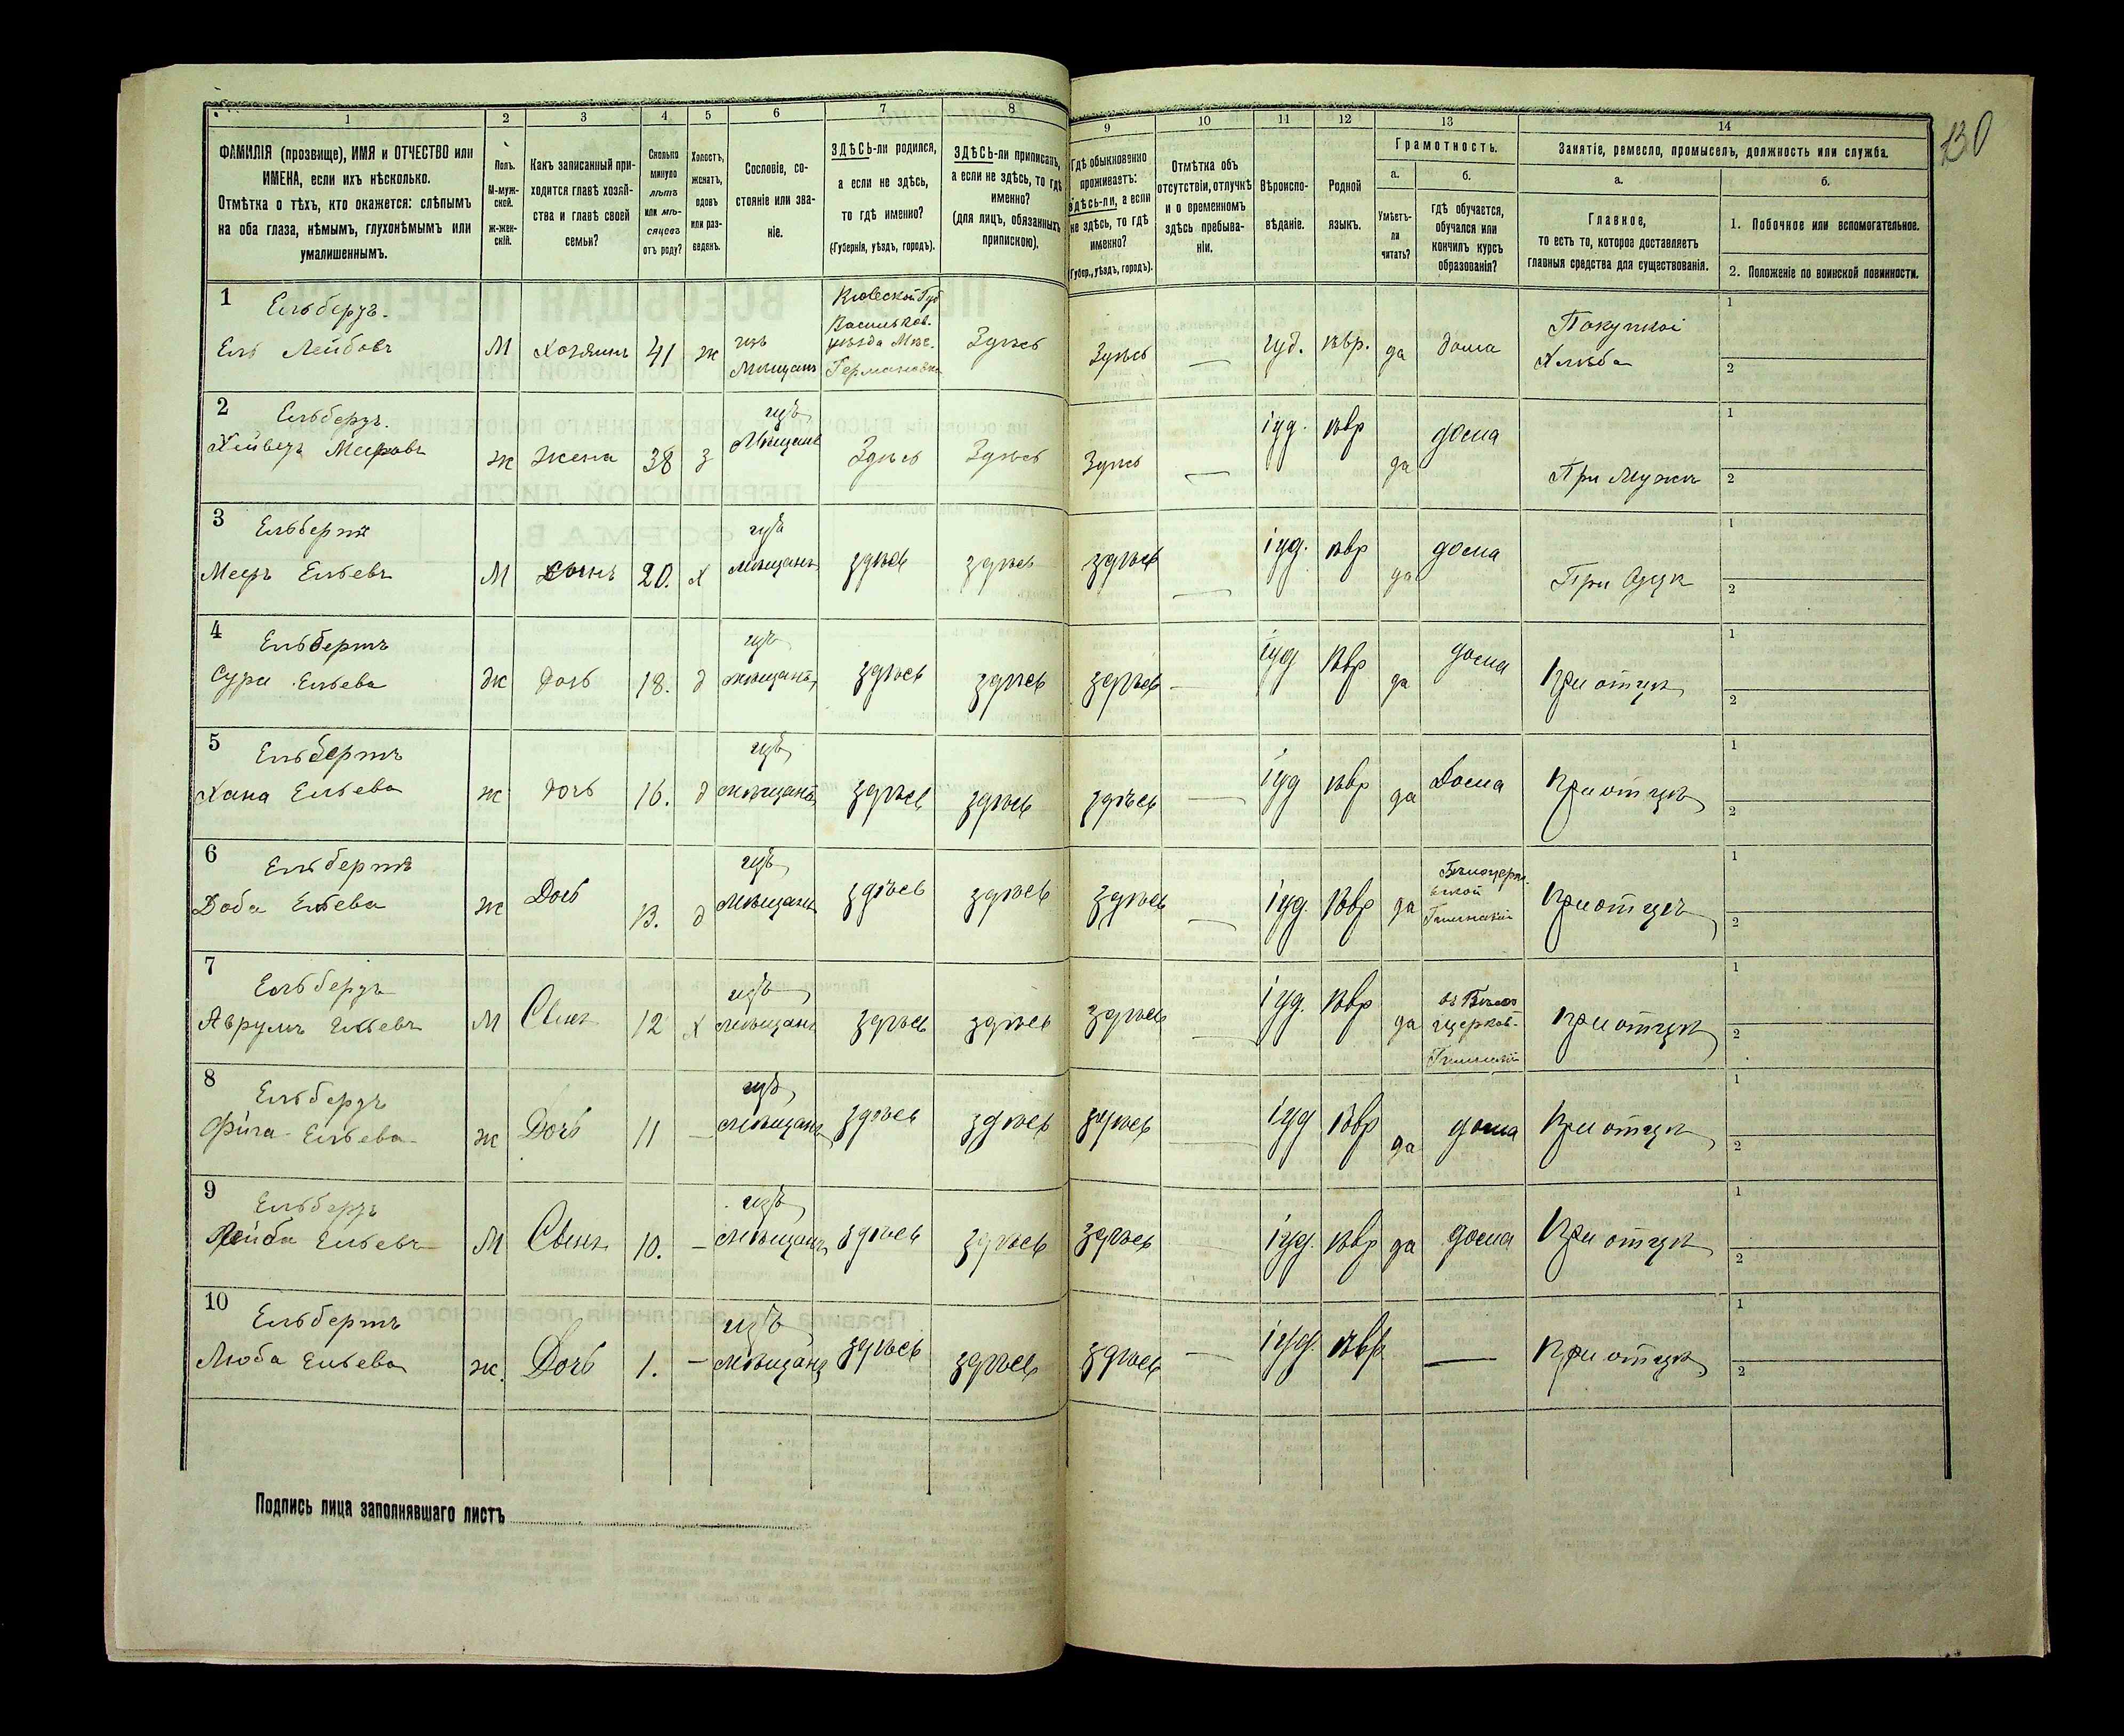 130
1 2 3 4 5 6 7 8 9 10 11 12 13 14
ФАМИЛІЯ (прозвище), ИМЯ и ОТЧЕСТВО или
ИМЕНА, если ихъ нѣсколько.
Отмѣтка о тѣхъ, кто окажется: слѣпымъ
на оба глаза, нѣмымъ, глухонѣмымъ или
умалишеннымъ.
Полъ.
М-муж-
ской.
ж-жен-
скій.
Какъ записанный при-
ходится главѣ хозяй-
ства и главѣ своей
семьи?
Сколько
минуло
лѣтъ
или мѣ-
сяцевъ
отъ роду?
Холостъ,
женатъ,
вдовъ
или раз-
веденъ.
Сословіе, со-
стояніе или зва-
ніе.
ЗДѢСЬ-ли родился,
а если не здѣсь,
то гдѣ именно?
(Губернія, уѣздъ, городъ).
ЗДѢСЬ-ли приписанъ,
а если не здѣсь, то гдѣ
именно?
(для лицъ, обязанныхъ
припискою).
Гдѣ обыкновенно
проживаетъ:
здѣсь-ли, а если
не здѣсь, то гдѣ
именно?
(Губер., уѣздъ, городъ).
Отмѣтка объ
отсутствіи, отлучкѣ
и о временномъ
здѣсь пребыва-
ніи.
Вѣроиспо-
вѣданіе.
Родной
языкъ.
Грамотность.
а.
Умѣетъ-
ли
читать?
б.
гдѣ обучается,
обучался или
кончилъ курсъ
образованія?
Занятіе, ремесло, промыселъ, должность или служба.
а.
Главное,
то есть то, которое доставляетъ
главныя средства для существованія.
б.
1. Побочное или вспомогательное.
2. Положеніе по воинской повинности.
1 Ельбертъ
Ель Лейбовъ М Хозяинъ 41 ж изъ
Мѣщанъ
Кіевской Губ
Васильков.
уѣзда Мѣс.
Германовка
Здѣсь Здѣсь — іуд. евр. да дома
Покупкой
Хлѣба
1
2
2 Ельбертъ
Мееровъ ж жена 38 з изъ
Мѣщанъ Здѣсь Здѣсь Здѣсь — іуд. евр да дома При Мужѣ
1
2
3 Ельбертъ
Мееръ Ельевъ М Сынъ 20. х изъ
мѣщанъ здѣсь здѣсь здѣсь — іуд. евр да дома При Отцѣ
1
2
4 Ельбертъ
Сура Ельева ж Дочь 18. д изъ
мѣщанъ здѣсь здѣсь здѣсь — іуд евр да дома при отцѣ
1
2
5 Ельбертъ
Хана Ельева ж Дочь 16. д изъ
мѣщанъ здѣсь здѣсь здѣсь — іуд евр да Дома при отцѣ
1
2
6 Ельбертъ
Доба Ельева ж Дочь 13. д изъ
Мѣщанъ здѣсь здѣсь здѣсь — іуд. евр да
Бѣлоцерк.
вской
Гимназіи
при отцѣ
1
2
7 Ельбертъ
Аврумъ Ельевъ М Сынъ 12 х изъ
мѣщанъ здѣсь здѣсь здѣсь — іуд. евр да
въ Бѣло
церков-
Гимназіи
при отцѣ
1
2
8 Ельбертъ
Фига Ельева ж Дочь 11 — изъ
мѣщанъ здѣсь здѣсь здѣсь — іуд евр да дома при отцѣ
1
2
9 Ельбертъ
Лейба Ельевъ М Сынъ 10. — изъ
мѣщанъ здѣсь здѣсь здѣсь — іуд. евр да дома при отцѣ
1
2
10 Ельбертъ
Люба Ельева ж. Дочь 1. — изъ
мѣщанъ здѣсь здѣсь здѣсь — іуд. евр — при отцѣ
1
2
Подпись лица заполнявшаго листъ